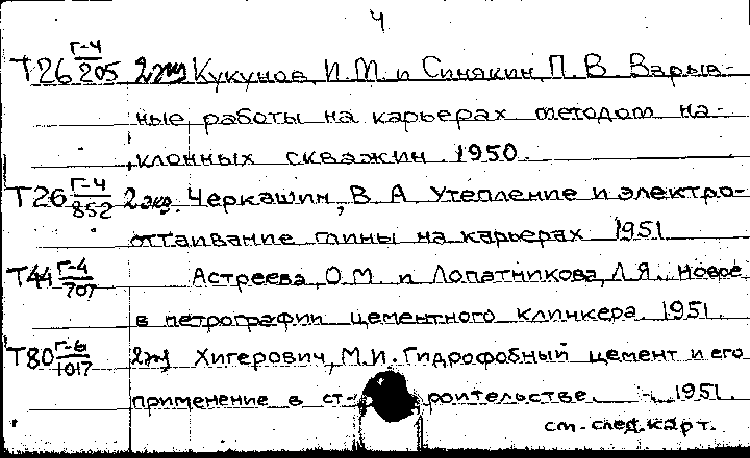 4
Т26 Г-4/205 2 экз Кукунов, И.М. и Синякин, П.В. Взрыв-
ные работы на карьерах методом на-
клонных скважин. 1950.
Т26 Г-4/852 2 экз. Черкашин, В.А. Утепление и электро-
оттаивание глины на карьерах 1951
Т44 Г-4/707 Астреева, О.М. и Лопатникова, Л.Я. Новое
в петрографии цементного клинкера. 1951.
Т80 Г-6/1017 2 экз Хигерович, М.И. Гидрофобный цемент и его
применение в строительстве. 1951.
см. след. карт.